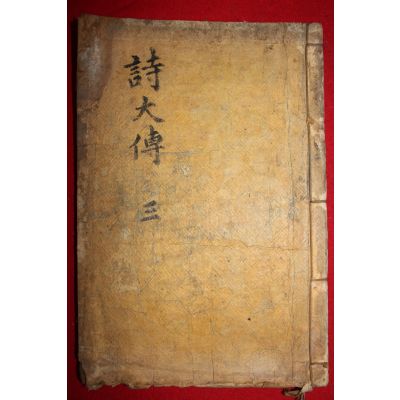 詩大傳 三